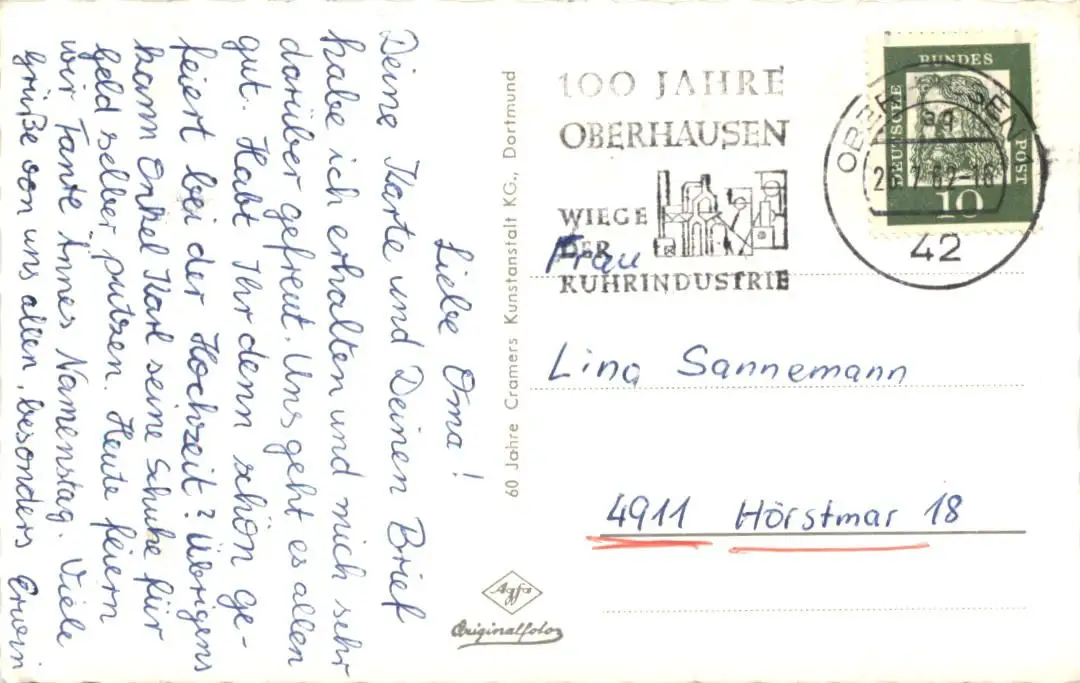 Liebe Oma!
Deine Karte und Deinen Brief
habe ich erhalten und mich sehr
darüber gefreut. Uns geht es allen
gut. Habt Ihr denn schön ge-
feiert bei der Hochzeit? Übrigens
kann Onkel Karl seine Schuhe für
Geld selber putzen. Heute feiern
wir Tante Annes Namenstag. Viele
Grüße von uns allen, besonders Erwin
60 Jahre Cramers Kunstanstalt KG., Dortmund
Agfa
Originalfoto
100 JAHRE
OBERHAUSEN
WIEGE
DER
RUHRINDUSTRIE
42
DEUTSCHE
BUNDES
POST
10
Frau
Lina Sannemann
4911 Hörstmar 18